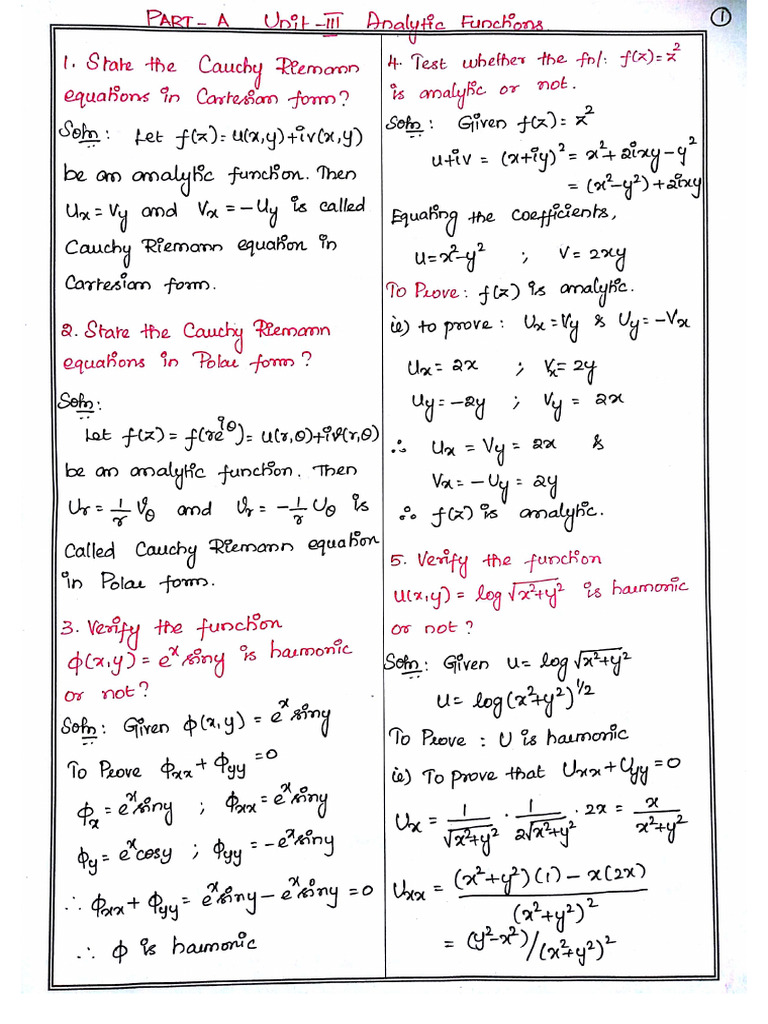 PART - A Unit - III Analytic Functions
①
1. State the Cauchy Riemann
equations in Cartesian form?
Soln: Let f(z) = u(x,y)+iv(x,y)
be an analytic function. Then
Ux = Vy and Vx = -Uy is called
Cauchy Riemann equation in
Cartesian form.
2. State the Cauchy Riemann
equations in Polar form?
Soln:
Let f(z) = f(re^iθ) = u(r,θ)+iv(r,θ)
be an analytic function. Then
Ur = 1/r Vθ and Vr = -1/r Uθ is
Called Cauchy Riemann equation
in Polar form.
3. Verify the function
ϕ(x,y) = e^x siny is harmonic
or not?
Soln: Given ϕ(x,y) = e^x siny
To Prove ϕxx + ϕyy = 0
ϕx = e^x siny ; ϕxx = e^x siny
ϕy = e^x cosy ; ϕyy = -e^x siny
∴ ϕxx + ϕyy = e^x siny - e^x siny = 0
∴ ϕ is harmonic
4. Test whether the fn/: f(z) = z²
is analytic or not.
Soln: Given f(z) = z²
u+iv = (x+iy)² = x²+2ixy-y²
= (x²-y²)+2ixy
Equating the coefficients,
u = x²-y² ; v = 2xy
To Prove: f(z) is analytic.
ie) to prove: Ux = Vy & Uy = -Vx
Ux = 2x ; Vx = 2y
Uy = -2y ; Vy = 2x
∴ Ux = Vy = 2x &
Vx = -Uy = 2y
∴ f(z) is analytic.
5. Verify the function
u(x,y) = log √(x²+y²) is harmonic
or not?
Soln: Given u = log √(x²+y²)
u = log (x²+y²)^1/2
To Prove : U is harmonic
ie) To prove that Uxx + Uyy = 0
Ux = 1/√(x²+y²) · 1/2√(x²+y²) · 2x = x/x²+y²
Uxx = (x²+y²)(1) - x(2x)/(x²+y²)²
= (y²-x²)/(x²+y²)²